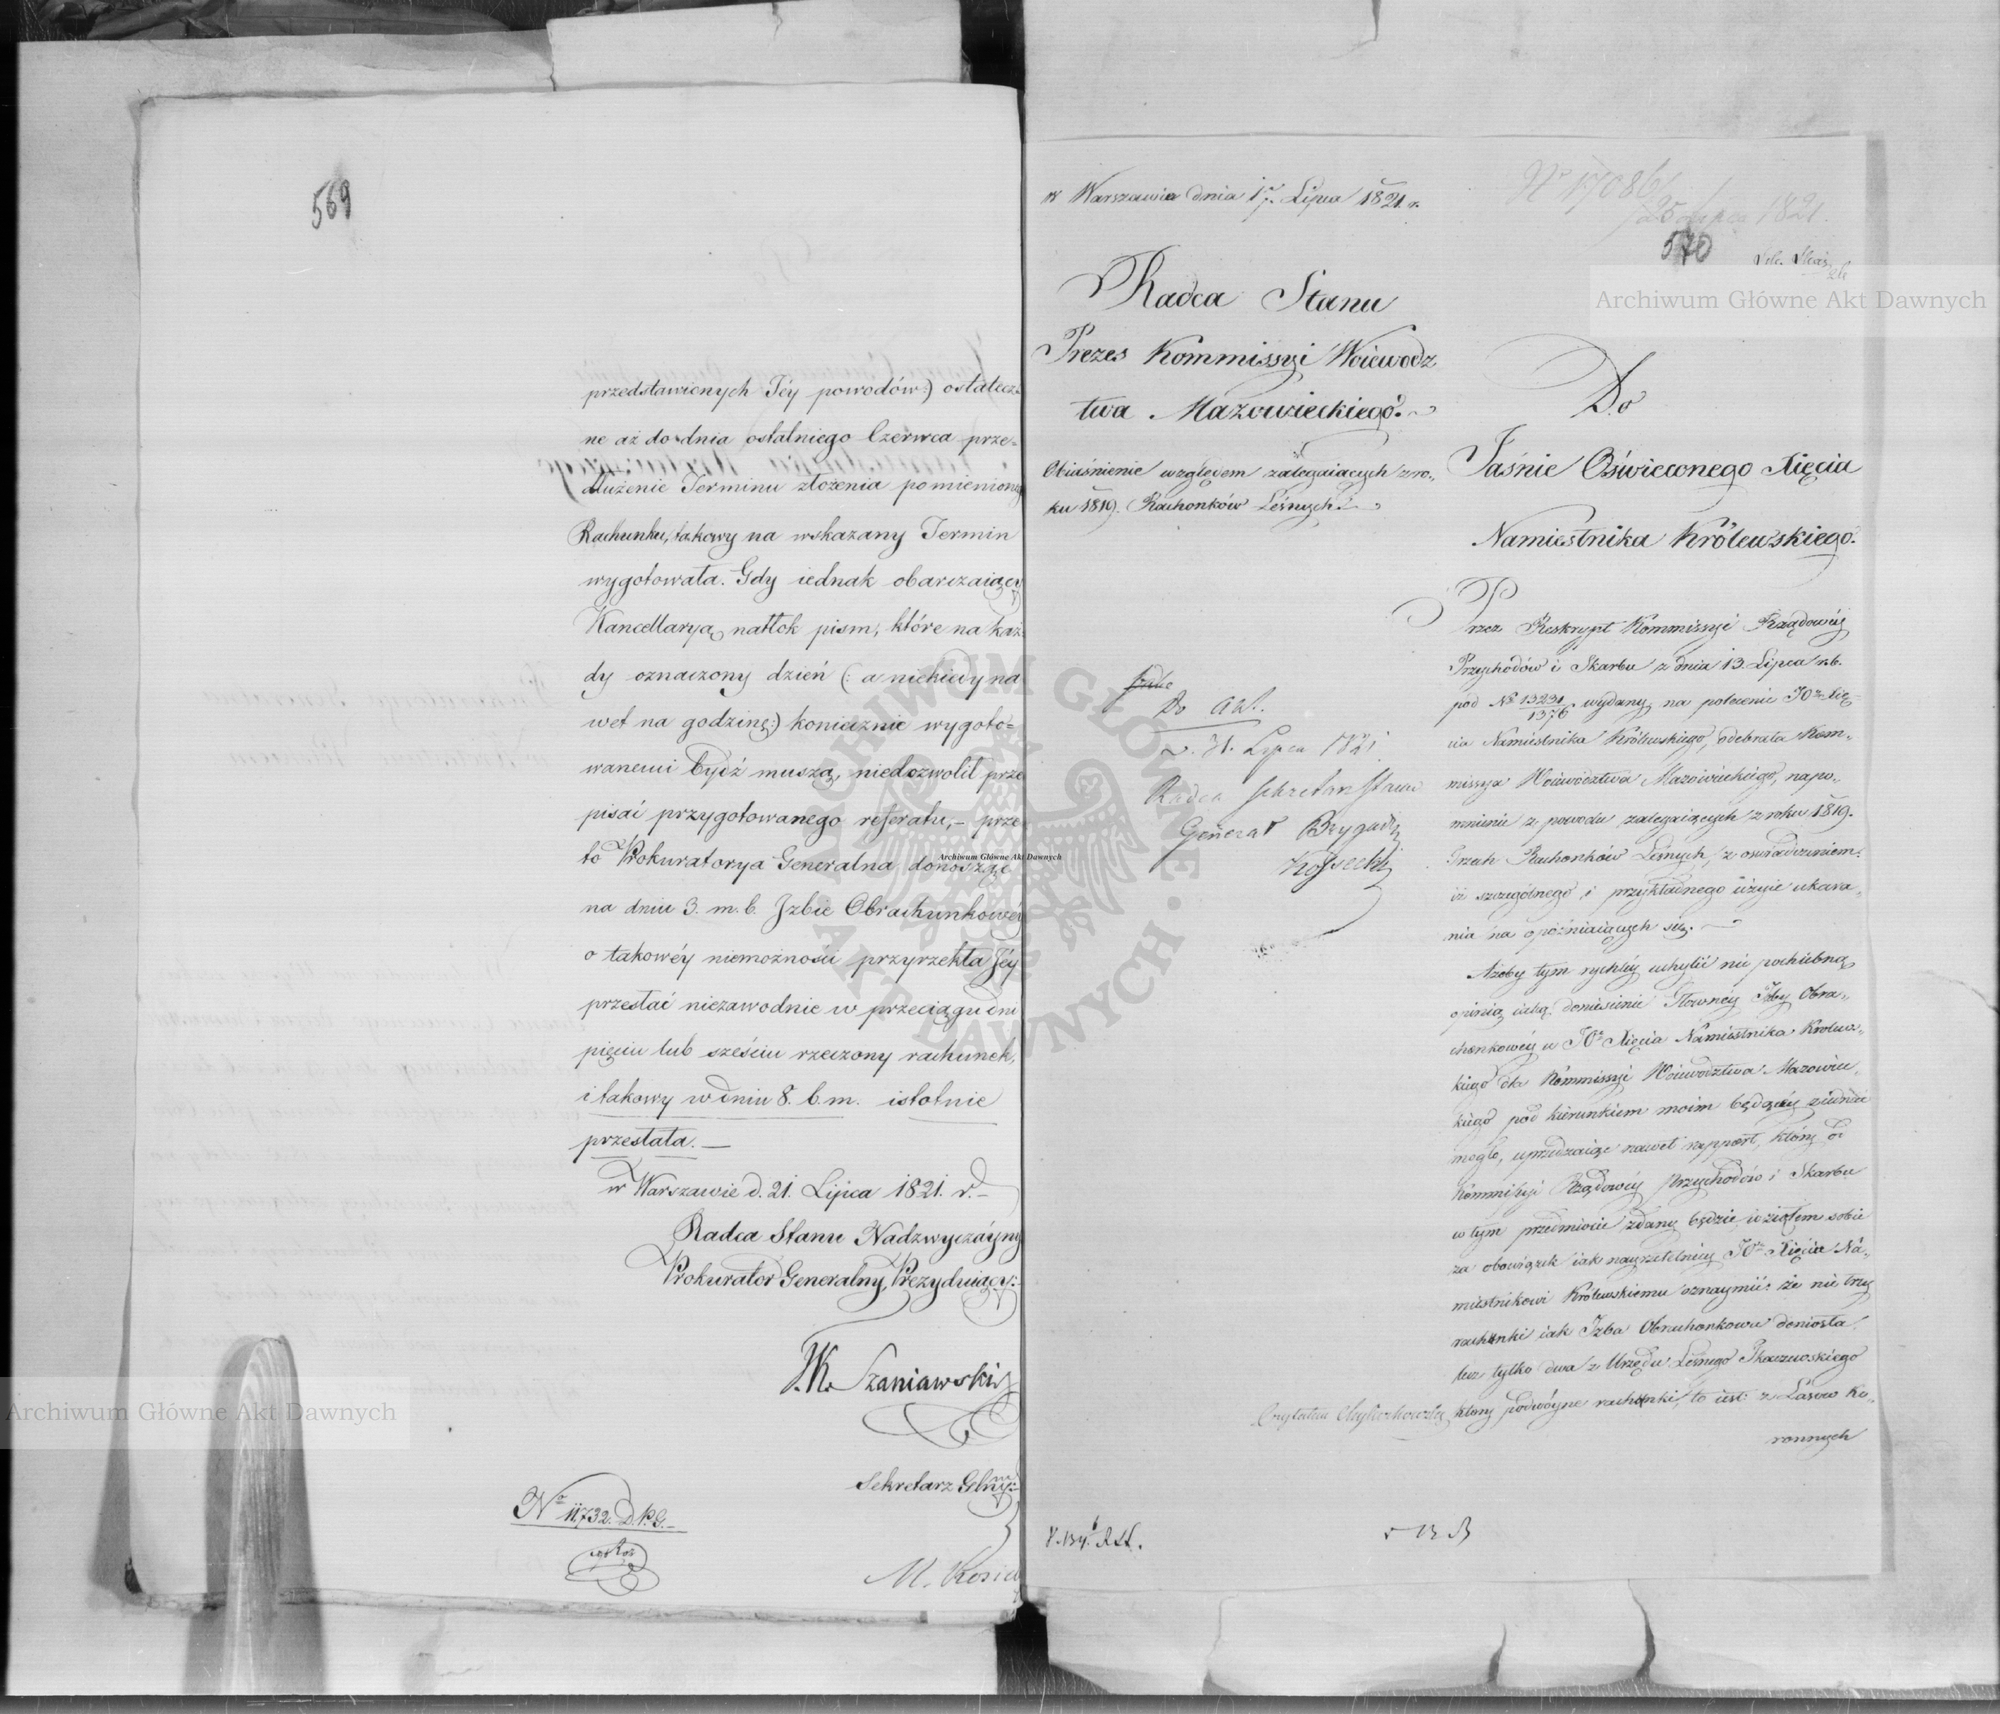 569
przedstawionych Jéy powodów:) ostatecz=
ne aż do dnia ostatniego Czerwca prze=
dłużenie Terminu złożenia pomienioneg
Rachunku, takowy na wskazany Termin
wygotowała. Gdy iednak obarczaiący
Kancellaryą natłok pism, które na każ
dy oznaczony dzień (: a niekiedy na
wet na godzinę:) koniecznie wygoto=
wanemi bydź muszą, niedozwolił prze
pisać przygotowanego referatu, – prze
to Prokuratorya Generalna donosząc
na dniu 3. m. b. Izbie Obrachunkowéy
o takowéy niemożności przyrzekła Jéy
przesłać niezawodnie w przeciągu dni
pięciu lub sześciu rzeczony rachunek,
i takowy w dniu 8. b. m. istotnie
przesłała. —
w Warszawie d. 21. Lipca 1821. r. –
Radca Stanu Nadzwyczáyny
Prokurator Generalny, Prezyduiący:
J. K. Szaniawski
Sekretarz Glny:
No 11,732. D. P. G.
M. Kosic
w Warszawie dnia 17. Lipca 1821. r.
Radca Stanu
Prezes Kommissyi Woiewodz
twa Mazowieckiego.
Obiaśnienie względem zalegaiących z ro„
ku 1819. Rachonków Leśnych.
Do Akt.
d. 31. Lipca 1821
Radca Sekretarz Stanu
Generał Brygady
Kossecki
No 17086
25 Lipca 1821.
570
Do
Jaśnie Oświeconego Xięcia
Namiestnika Królewskiego.
Przez Reskrypt Kommissyi Rządowéy
Przychodów i Skarbu z dnia 13. Lipca r. b.
pod No 13231/1376 wydany na polecenie JO. Xię„
cia Namiestnika Królewskiego, odebrała Kom„
missya Woiewództwa Mazowieckiego, napo„
mnienie z powodu zalegaiących z roku 1819.
Trzech Rachonków Leśnych, z oświadczeniem:
iż szczególnego i przykładnego użyie ukara„
nia na opóźniaiących się.
Ażeby tym rychléy uchylić nie pochlebną
opinią iaką doniesienie Głownéy Izby Obra„
chonkowéy u JO. Xięcia Namiestnika Królew„
kiego dla Kommissyi Woiewództwa Mazowiec„
kiego pod kierunkiem moim będącéy ziednać
mogło, uprzedzaiąc nawet rapport, który do
Kommissyi Rządowéy Przychodów i Skarbu
w tym przedmiocie zdany będzie, wziąłem sobie
za obowiązek iak nayrzetelniéy JO. Xięcia Na„
miestnikowi Królewskiemu oznaymić: że nie trzy
rachunki iak Izba Obrachonkowa doniosła
lecz tylko dwa z Urzędu Leśnego
który podwóyne rachunki, to iest z Lasów Ko„
ronnych
Archiwum Główne Akt Dawnych
Archiwum Główne Akt Dawnych
Archiwum Główne Akt Dawnych
ARCHIWUM GŁÓWNE AKT DAWNYCH